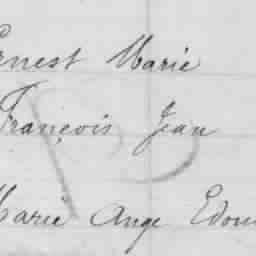 Ernest Marie
François Jean
Marie Ange Edou